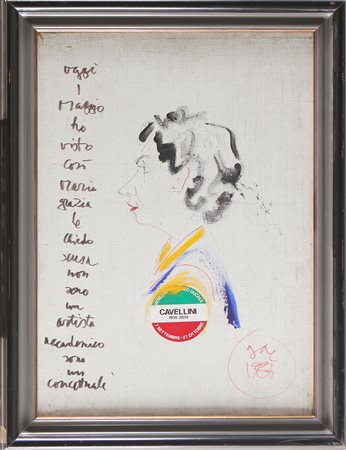 oggi
1
Maggio
ho
visto
così
Maria
grazia
le
chiedo
scusa
non
sono
un
artista
accademico
sono
un
concettuale
PALAZZO DUCALE
CAVELLINI
1914-2014
7 SETTEMBRE - 27 OTTOBRE